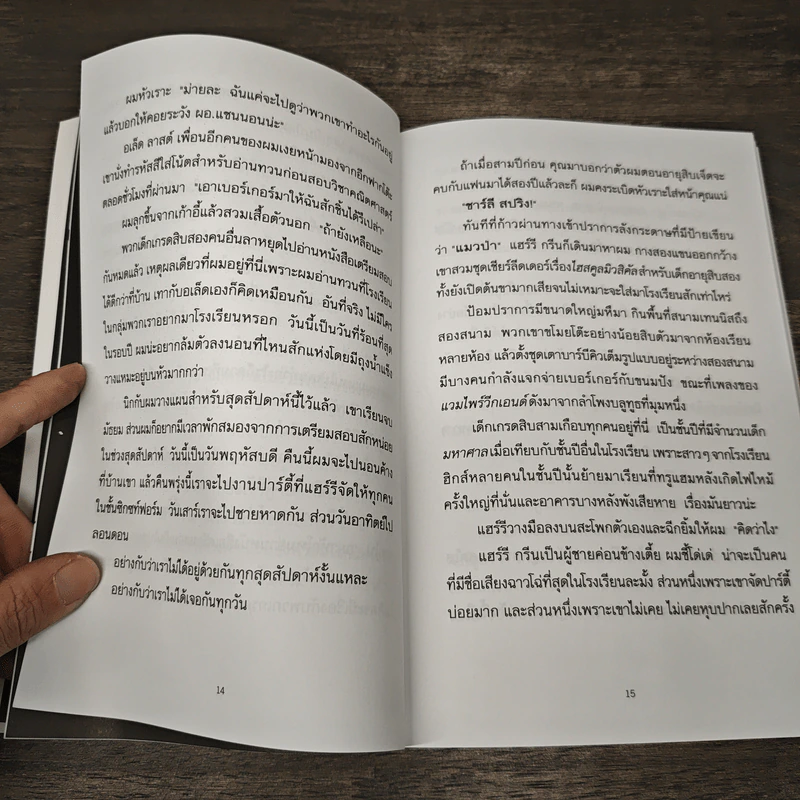 ผมหัวเราะ "ม่ายละ ฉันแค่จะไปดูว่าพวกเขาทำอะไรกันอยู่
แล้วบอกให้คอยระวัง ผอ.แชนนอนน่ะ"
อเล็ด ลาสต์ เพื่อนอีกคนของผมเงยหน้ามองจากอีกฟากโต๊ะ
เขานั่งทำรหัสสีใส่โน้ตสำหรับอ่านทวนก่อนสอบวิชาคณิตศาสตร์
ตลอดชั่วโมงที่ผ่านมา "เอาเบอร์เกอร์มาให้ฉันสักชิ้นได้รึเปล่า"
ผมลุกขึ้นจากเก้าอี้แล้วสวมเสื้อตัวนอก "ถ้ายังเหลือนะ"
พวกเด็กเกรดสิบสองคนอื่นลาหยุดไปอ่านหนังสือเตรียมสอบ
กันหมดแล้ว เหตุผลเดียวที่ผมอยู่ที่นี่เพราะผมอ่านทวนที่โรงเรียน
ได้ดีกว่าที่บ้าน เทากับอเล็ดเองก็คิดเหมือนกัน อันที่จริง ไม่มีใคร
ในกลุ่มพวกเราอยากมาโรงเรียนหรอก วันนี้เป็นวันที่ร้อนที่สุด
ในรอบปี ผมน่ะอยากล้มตัวลงนอนที่ไหนสักแห่งโดยมีถุงน้ำแข็ง
วางแหมะอยู่บนหัวมากกว่า
นิกกับผมวางแผนสำหรับสุดสัปดาห์นี้ไว้แล้ว เขาเรียนจบ
มัธยม ส่วนผมก็อยากมีเวลาพักสมองจากการเตรียมสอบสักหน่อย
ในช่วงสุดสัปดาห์ วันนี้เป็นวันพฤหัสบดี คืนนี้ผมจะไปนอนค้าง
ที่บ้านเขา แล้วคืนพรุ่งนี้เราจะไปงานปาร์ตี้ที่แฮร์รีจัดให้ทุกคน
ในชั้นซิกซ์ฟอร์ม วันเสาร์เราจะไปชายหาดกัน ส่วนวันอาทิตย์ไป
ลอนดอน
อย่างกับว่าเราไม่ได้อยู่ด้วยกันทุกสุดสัปดาห์งั้นแหละ
อย่างกับว่าเราไม่ได้เจอกันทุกวัน
14
ถ้าเมื่อสามปีก่อน คุณมาบอกว่าตัวผมตอนอายุสิบเจ็ดจะ
คบกับแฟนมาได้สองปีแล้วละก็ ผมคงระเบิดหัวเราะใส่หน้าคุณแน่
"ชาร์ลี สปริง!"
ทันทีที่ก้าวผ่านทางเข้าปราการลังกระดาษที่มีป้ายเขียน
ว่า "แมวป่า" แฮร์รี กรีนก็เดินมาหาผม กางสองแขนออกกว้าง
เขาสวมชุดเชียร์ลีดเดอร์เรื่องไฮสคูลมิวสิคัลสำหรับเด็กอายุสิบสอง
ทั้งยังเปิดต้นขามากเสียจนไม่เหมาะจะใส่มาโรงเรียนสักเท่าไหร่
ป้อมปราการมีขนาดใหญ่มหึมา กินพื้นที่สนามเทนนิสถึง
สองสนาม พวกเขาขโมยโต๊ะอย่างน้อยสิบตัวมาจากห้องเรียน
หลายห้อง แล้วตั้งชุดเตาบาร์บีคิวเต็มรูปแบบอยู่ระหว่างสองสนาม
มีบางคนกำลังแจกจ่ายเบอร์เกอร์กับขนมปัง ขณะที่เพลงของ
แวมไพร์วีกเอนด์ ดังมาจากลำโพงบลูทูธที่มุมหนึ่ง
เด็กเกรดสิบสามเกือบทุกคนอยู่ที่นี่ เป็นชั้นปีที่มีจำนวนเด็ก
มหาศาลเมื่อเทียบกับชั้นปีอื่นในโรงเรียน เพราะสาวๆ จากโรงเรียน
ฮิกส์หลายคนในชั้นปีนั้นย้ายมาเรียนที่ทรูแฮมหลังเกิดไฟไหม้
ครั้งใหญ่ที่นั่นและอาคารบางหลังพังเสียหาย เรื่องมันยาวน่ะ
แฮร์รีวางมือลงบนสะโพกตัวเองและฉีกยิ้มให้ผม "คิดว่าไง"
แฮร์รี กรีนเป็นผู้ชายค่อนข้างเตี้ย ผมชี้โด่เด่ น่าจะเป็นคน
ที่มีชื่อเสียงฉาวโฉ่ที่สุดในโรงเรียนละมั้ง ส่วนหนึ่งเพราะเขาจัดปาร์ตี้
บ่อยมาก และส่วนหนึ่งเพราะเขาไม่เคย ไม่เคยหุบปากเลยสักครั้ง
15